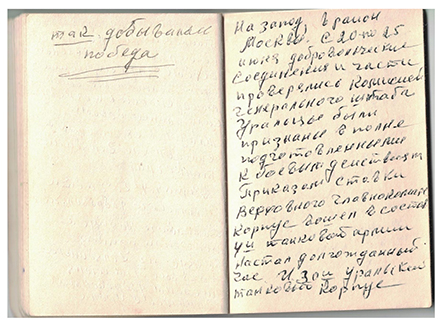 так добывалась
победа
На запад в район
Москвы. С 20 по 25
июня добровольческие
соединения и части
проверялись комиссией
генерального штаба
Уральцы были
признаны вполне
подготовленными
к боевым действиям
Приказом Ставки
Верховного главнокоманд
корпус вошел в состав
4й танковой армии
Настал долгожданный
час И
уральский
танковый корпус